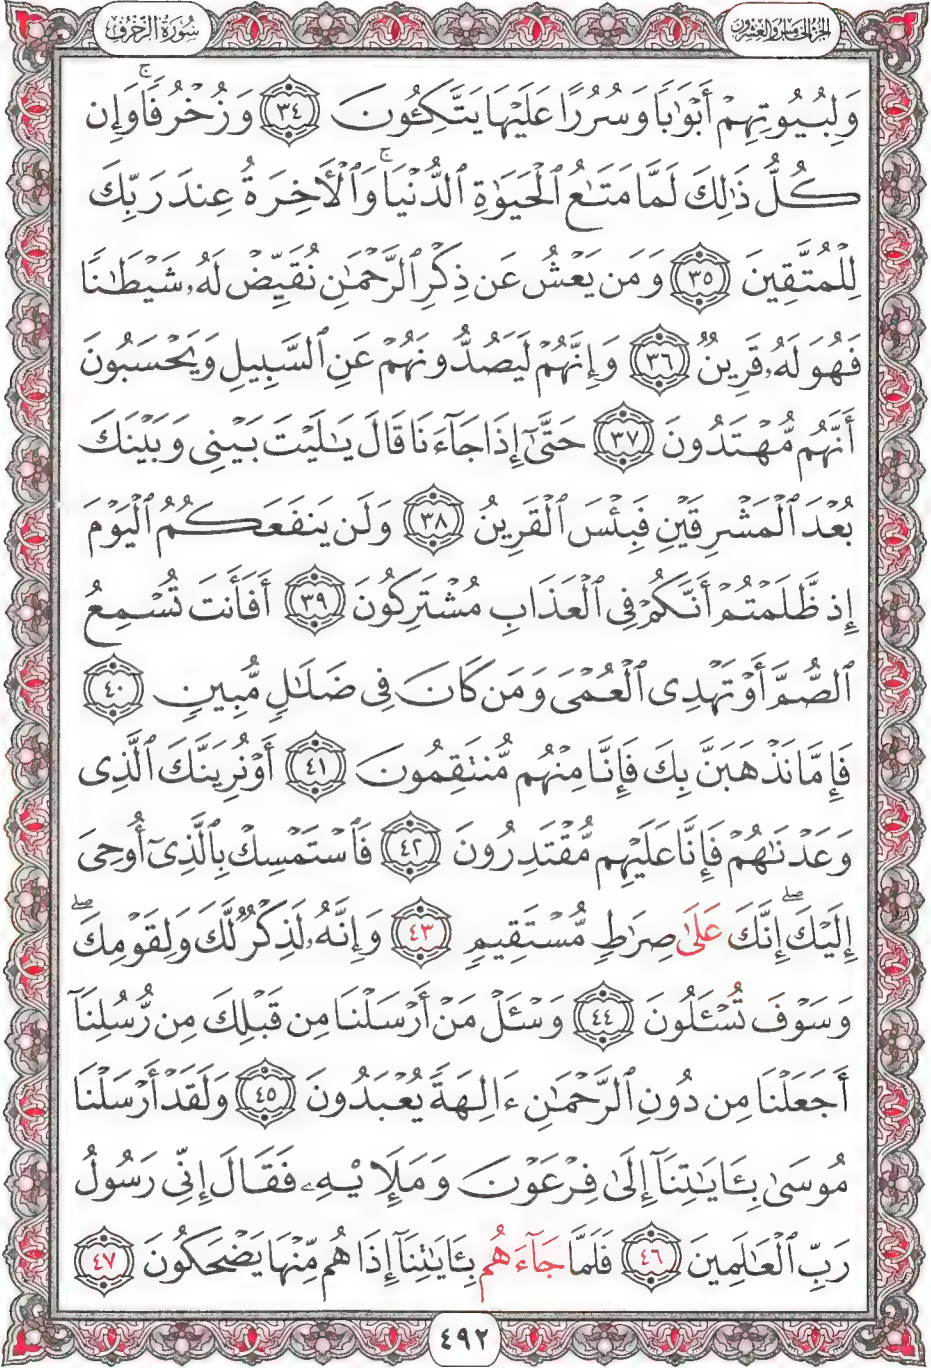 الجزء الخامس والعشرون
سُورَةُ الزُّخْرُفِ
وَلِبُيُوتِهِمْ أَبْوَٰبًا وَسُرُرًا عَلَيْهَا يَتَّكِـُٔونَ ﴿٣٤﴾ وَزُخْرُفًا ۚ وَإِن
كُلُّ ذَٰلِكَ لَمَّا مَتَـٰعُ ٱلْحَيَوٰةِ ٱلدُّنْيَا ۚ وَٱلْـَٔاخِرَةُ عِندَ رَبِّكَ
لِلْمُتَّقِينَ ﴿٣٥﴾ وَمَن يَعْشُ عَن ذِكْرِ ٱلرَّحْمَـٰنِ نُقَيِّضْ لَهُۥ شَيْطَـٰنًا
فَهُوَ لَهُۥ قَرِينٌ ﴿٣٦﴾ وَإِنَّهُمْ لَيَصُدُّونَهُمْ عَنِ ٱلسَّبِيلِ وَيَحْسَبُونَ
أَنَّهُم مُّهْتَدُونَ ﴿٣٧﴾ حَتَّىٰٓ إِذَا جَآءَنَا قَالَ يَـٰلَيْتَ بَيْنِى وَبَيْنَكَ
بُعْدَ ٱلْمَشْرِقَيْنِ فَبِئْسَ ٱلْقَرِينُ ﴿٣٨﴾ وَلَن يَنفَعَكُمُ ٱلْيَوْمَ
إِذ ظَّلَمْتُمْ أَنَّكُمْ فِى ٱلْعَذَابِ مُشْتَرِكُونَ ﴿٣٩﴾ أَفَأَنتَ تُسْمِعُ
ٱلصُّمَّ أَوْ تَهْدِى ٱلْعُمْىَ وَمَن كَانَ فِى ضَلَـٰلٍ مُّبِينٍ ﴿٤٠﴾
فَإِمَّا نَذْهَبَنَّ بِكَ فَإِنَّا مِنْهُم مُّنتَقِمُونَ ﴿٤١﴾ أَوْ نُرِيَنَّكَ ٱلَّذِى
وَعَدْنَـٰهُمْ فَإِنَّا عَلَيْهِم مُّقْتَدِرُونَ ﴿٤٢﴾ فَٱسْتَمْسِكْ بِٱلَّذِىٓ أُوحِىَ
إِلَيْكَ ۖ إِنَّكَ عَلَىٰ صِرَٰطٍ مُّسْتَقِيمٍ ﴿٤٣﴾ وَإِنَّهُۥ لَذِكْرٌ لَّكَ وَلِقَوْمِكَ ۖ
وَسَوْفَ تُسْـَٔلُونَ ﴿٤٤﴾ وَسْـَٔلْ مَنْ أَرْسَلْنَا مِن قَبْلِكَ مِن رُّسُلِنَآ
أَجَعَلْنَا مِن دُونِ ٱلرَّحْمَـٰنِ ءَالِهَةً يُعْبَدُونَ ﴿٤٥﴾ وَلَقَدْ أَرْسَلْنَا
مُوسَىٰ بِـَٔايَـٰتِنَآ إِلَىٰ فِرْعَوْنَ وَمَلَإِي۟هِۦ فَقَالَ إِنِّى رَسُولُ
رَبِّ ٱلْعَـٰلَمِينَ ﴿٤٦﴾ فَلَمَّا جَآءَهُم بِـَٔايَـٰتِنَآ إِذَا هُم مِّنْهَا يَضْحَكُونَ ﴿٤٧﴾
٤٩٢